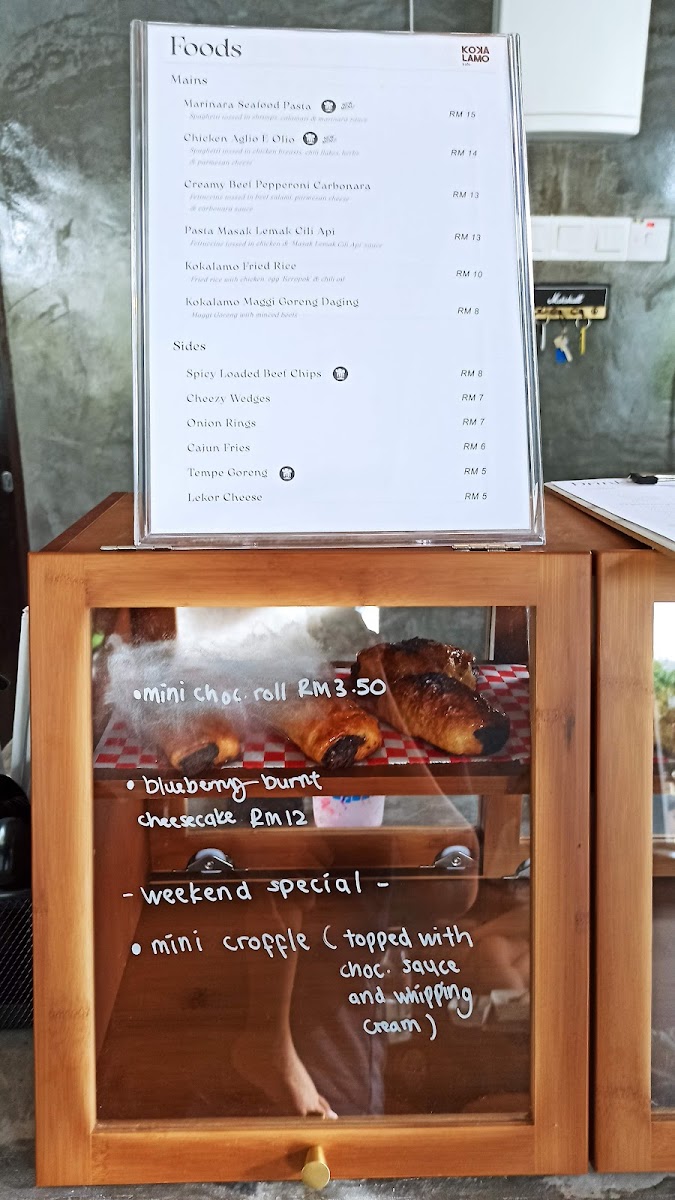 Foods
KOKA
LAMO
Mains
Marinara Seafood Pasta
Spaghetti tossed in shrimps, calamari & marinara sauce
RM 15
Chicken Aglio E Olio
Spaghetti tossed in chicken breasts, corn flakes, herbs
& parmesan cheese
RM 14
Creamy Beef Pepperoni Carbonara
Fettuccine tossed in beef salami, parmesan cheese
& carbonara sauce
RM 13
Pasta Masak Lemak Cili Api
Fettuccine tossed in chicken & Masak Lemak Cili Api sauce
RM 13
Kokalamo Fried Rice
Fried rice with chicken, egg, keropok & chili oil
RM 10
Kokalamo Maggi Goreng Daging
Maggi Goreng with minced beefs
RM 8
Sides
Spicy Loaded Beef Chips RM 8
Cheezy Wedges RM 7
Onion Rings RM 7
Cajun Fries RM 6
Tempe Goreng RM 5
Lekor Cheese RM 5
Marshall
•mini choc. roll RM3.50
• blueberry burnt
cheesecake RM12
- weekend special -
• mini croffle (topped with
choc. sauce
and whipping
cream)